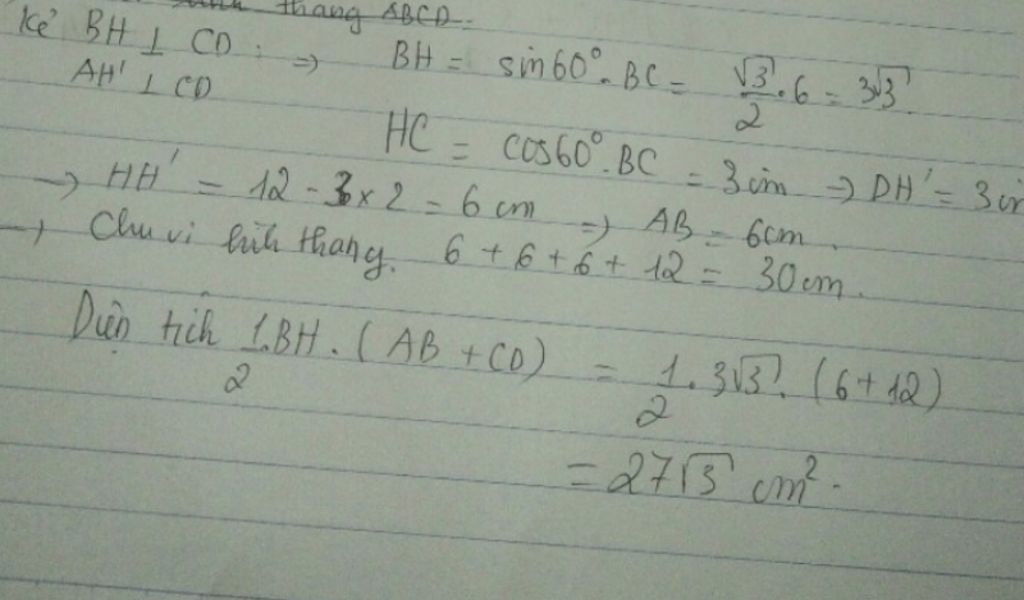 thang ABCD.
Kẻ BH ⊥ CD : ⇒ BH = sin60°. BC = √3/2 . 6 = 3√3
AH' ⊥ CD
HC = cos60°. BC = 3cm ⇒ DH' = 3cm
→ HH' = 12 - 3 x 2 = 6 cm ⇒ AB = 6cm.
→ Chu vi hình thang. 6 + 6 + 6 + 12 = 30 cm.
Diện tích 1/2.BH.(AB + CD) = 1/2. 3√3. (6 + 12)
= 27√3 cm².